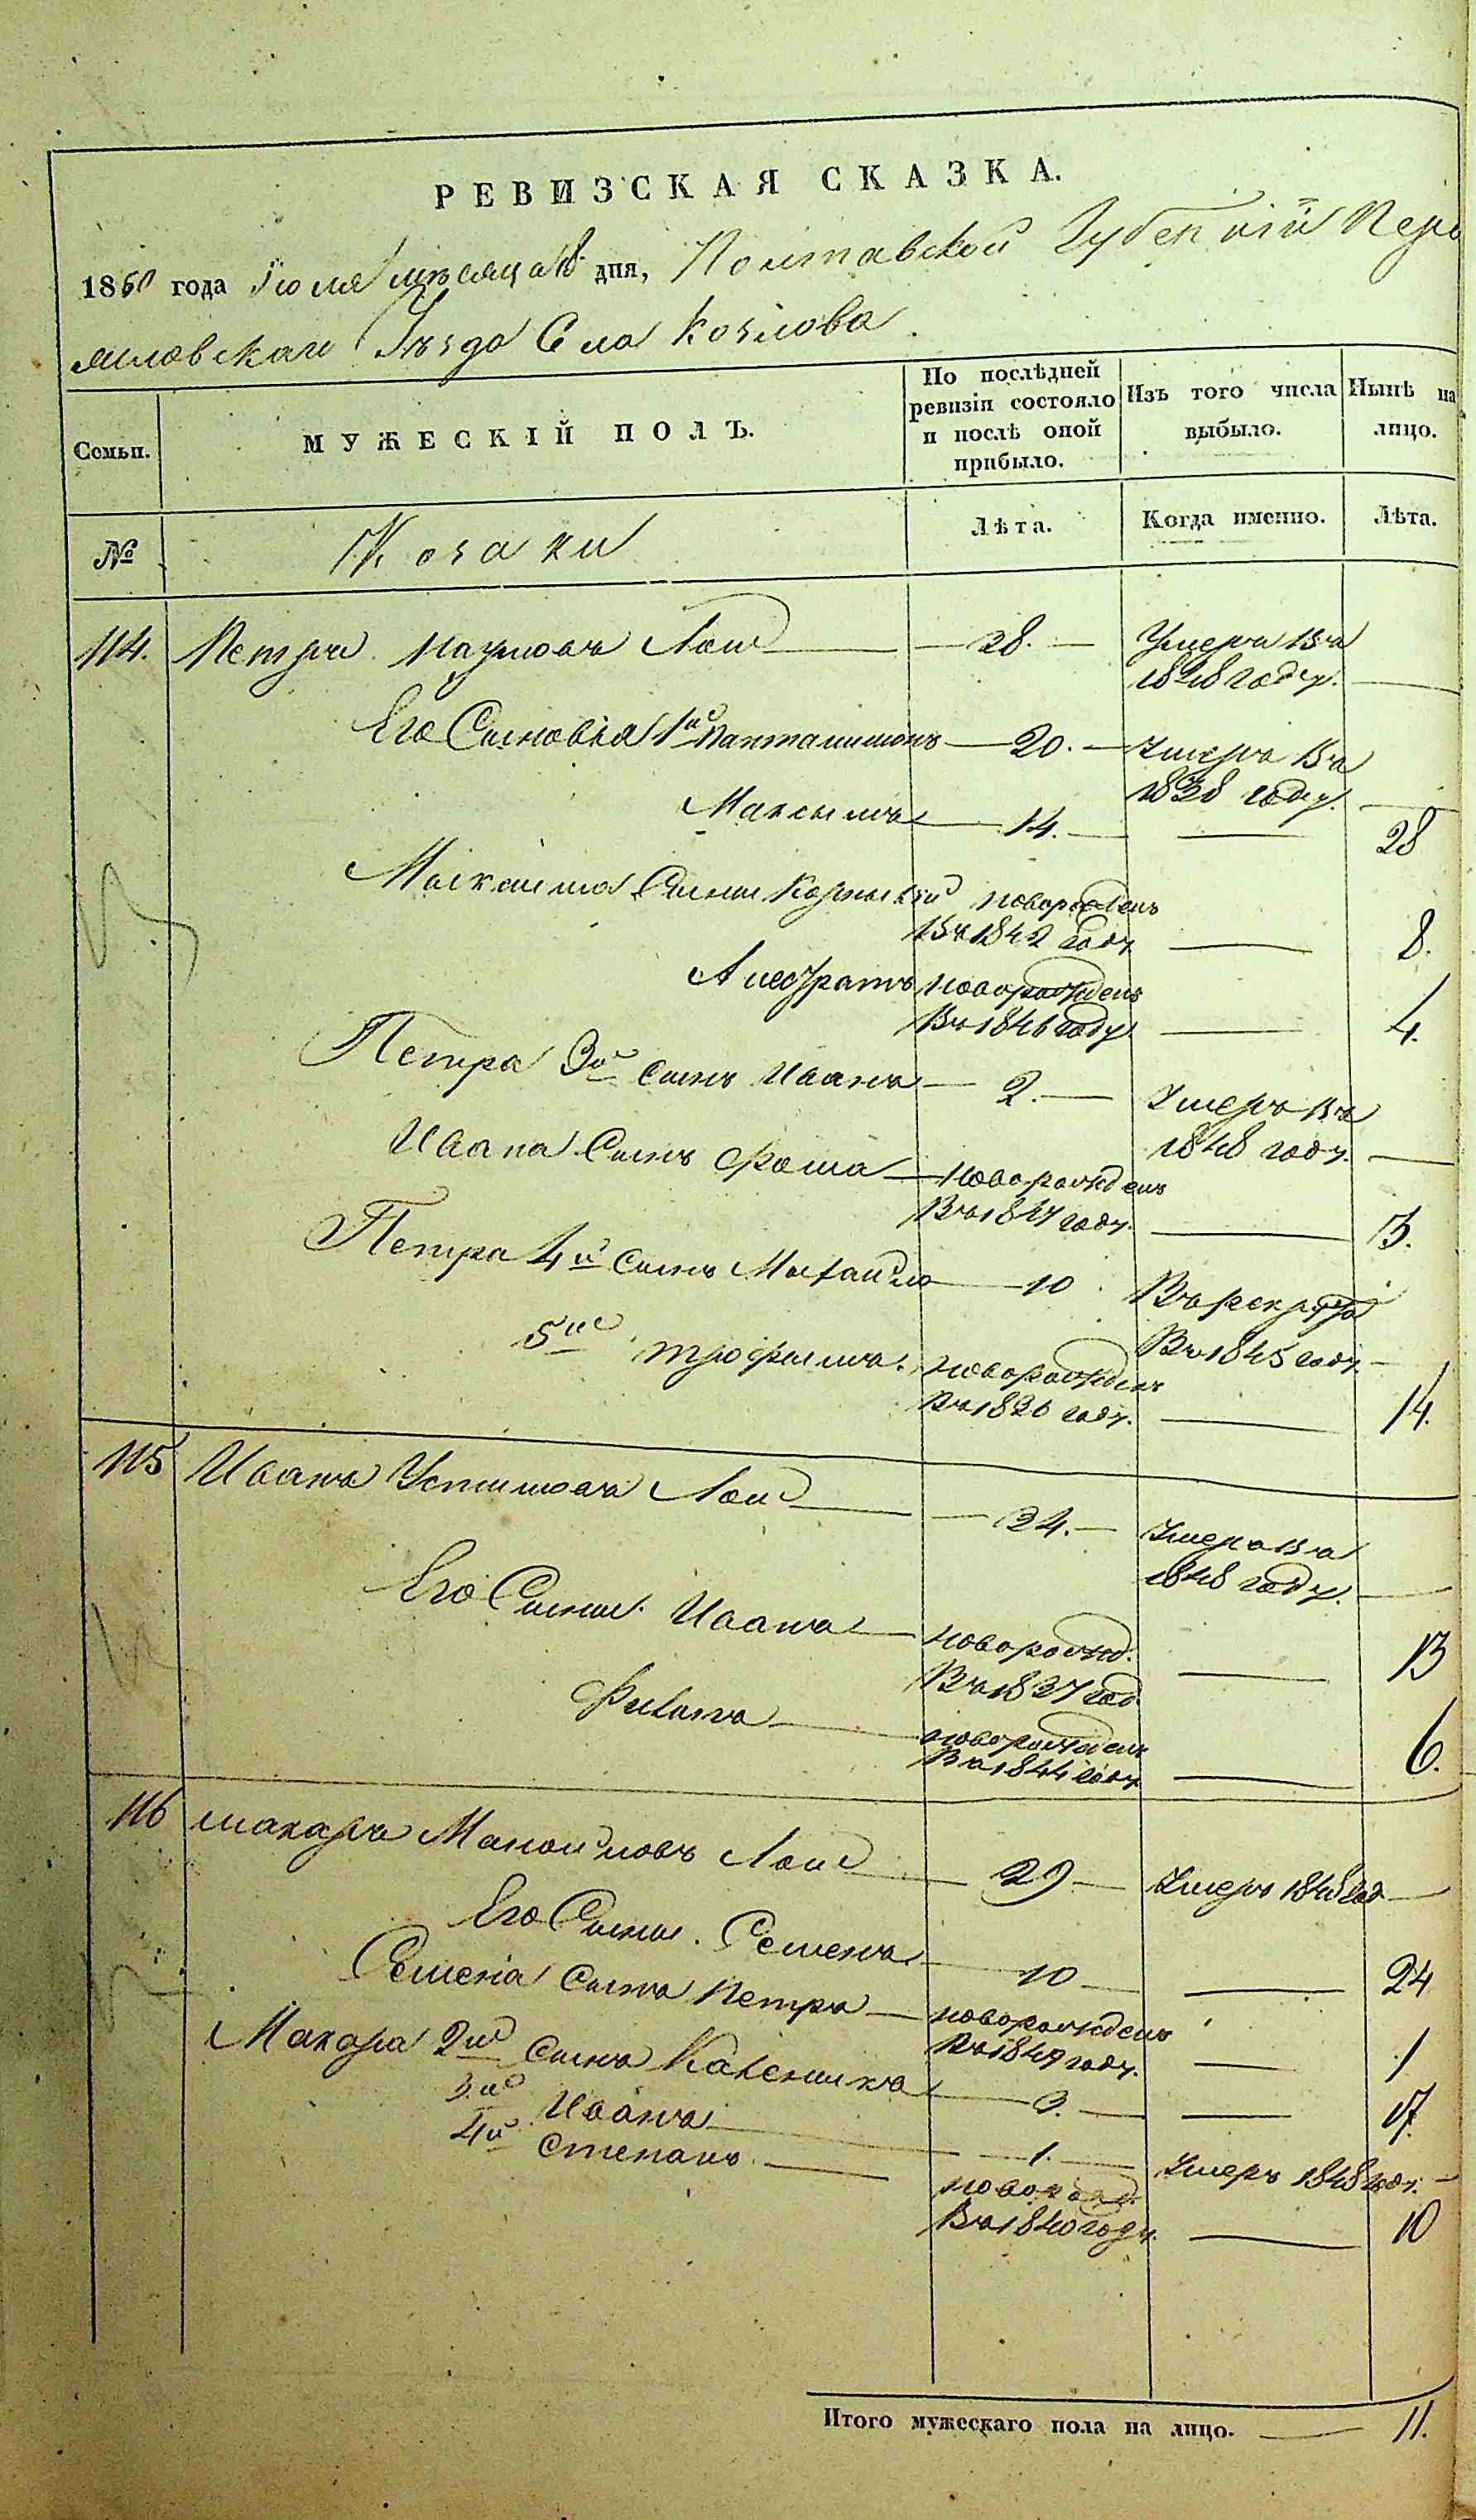 РЕВИЗСКАЯ СКАЗКА.
1850 года Іюля мѣсяца 18 дня, Полтавской Губерніи Пере
яславскаго Уѣзда Села Козлова.
Семьи.
МУЖЕСКІЙ ПОЛЪ.
По послѣдней ревизіи состояло и послѣ оной прибыло.
Изъ того числа выбыло.
Нынѣ на лицо.
№
Козаки
Лѣта.
Когда именно.
Лѣта.
114. Петръ Наумовъ Лой — 38. — Умеръ въ
1848 году. —
Его Сыновья 1й Панталимонъ — 20. — Умеръ въ
1838 году. —
Максымъ — 14. — — 28
Максима Сыны Корнилій новорожденъ
въ 1842 году — 8.
Каленистратъ новорожденъ
въ 1846 году — 4.
Петра 3й сынъ Иванъ — 2. — Умеръ въ
1848 году. —
Ивана Сынъ Фома — новорожденъ
въ 1847 году. — 3.
Петра 4й сынъ Михаило — 10 Въ рекруты
въ 1845 году. —
5й Трофимъ. новорожденъ
въ 1836 году. — 14.
115 Иванъ Устимовъ Лой — 34. — Умеръ въ
1848 году. —
Его Сыны Иванъ — новорожд.
въ 1837 год — 13
новорожденъ
въ 1844 году — 6.
116 Макаръ Мануиловъ Лой — 29 — Умеръ 1848 год —
Его Сыны. Семенъ — 10 — — 24
Семена Сынъ Петръ — новорожденъ
въ 1849 году. — 1
Макара 2й сынъ Каленикъ — 3. — — 17.
3й Иванъ — 1. — Умеръ 1848 году. —
4й Степанъ — новорожд.
въ 1840 году. — 10
Итого мужескаго пола на лицо. — 11.